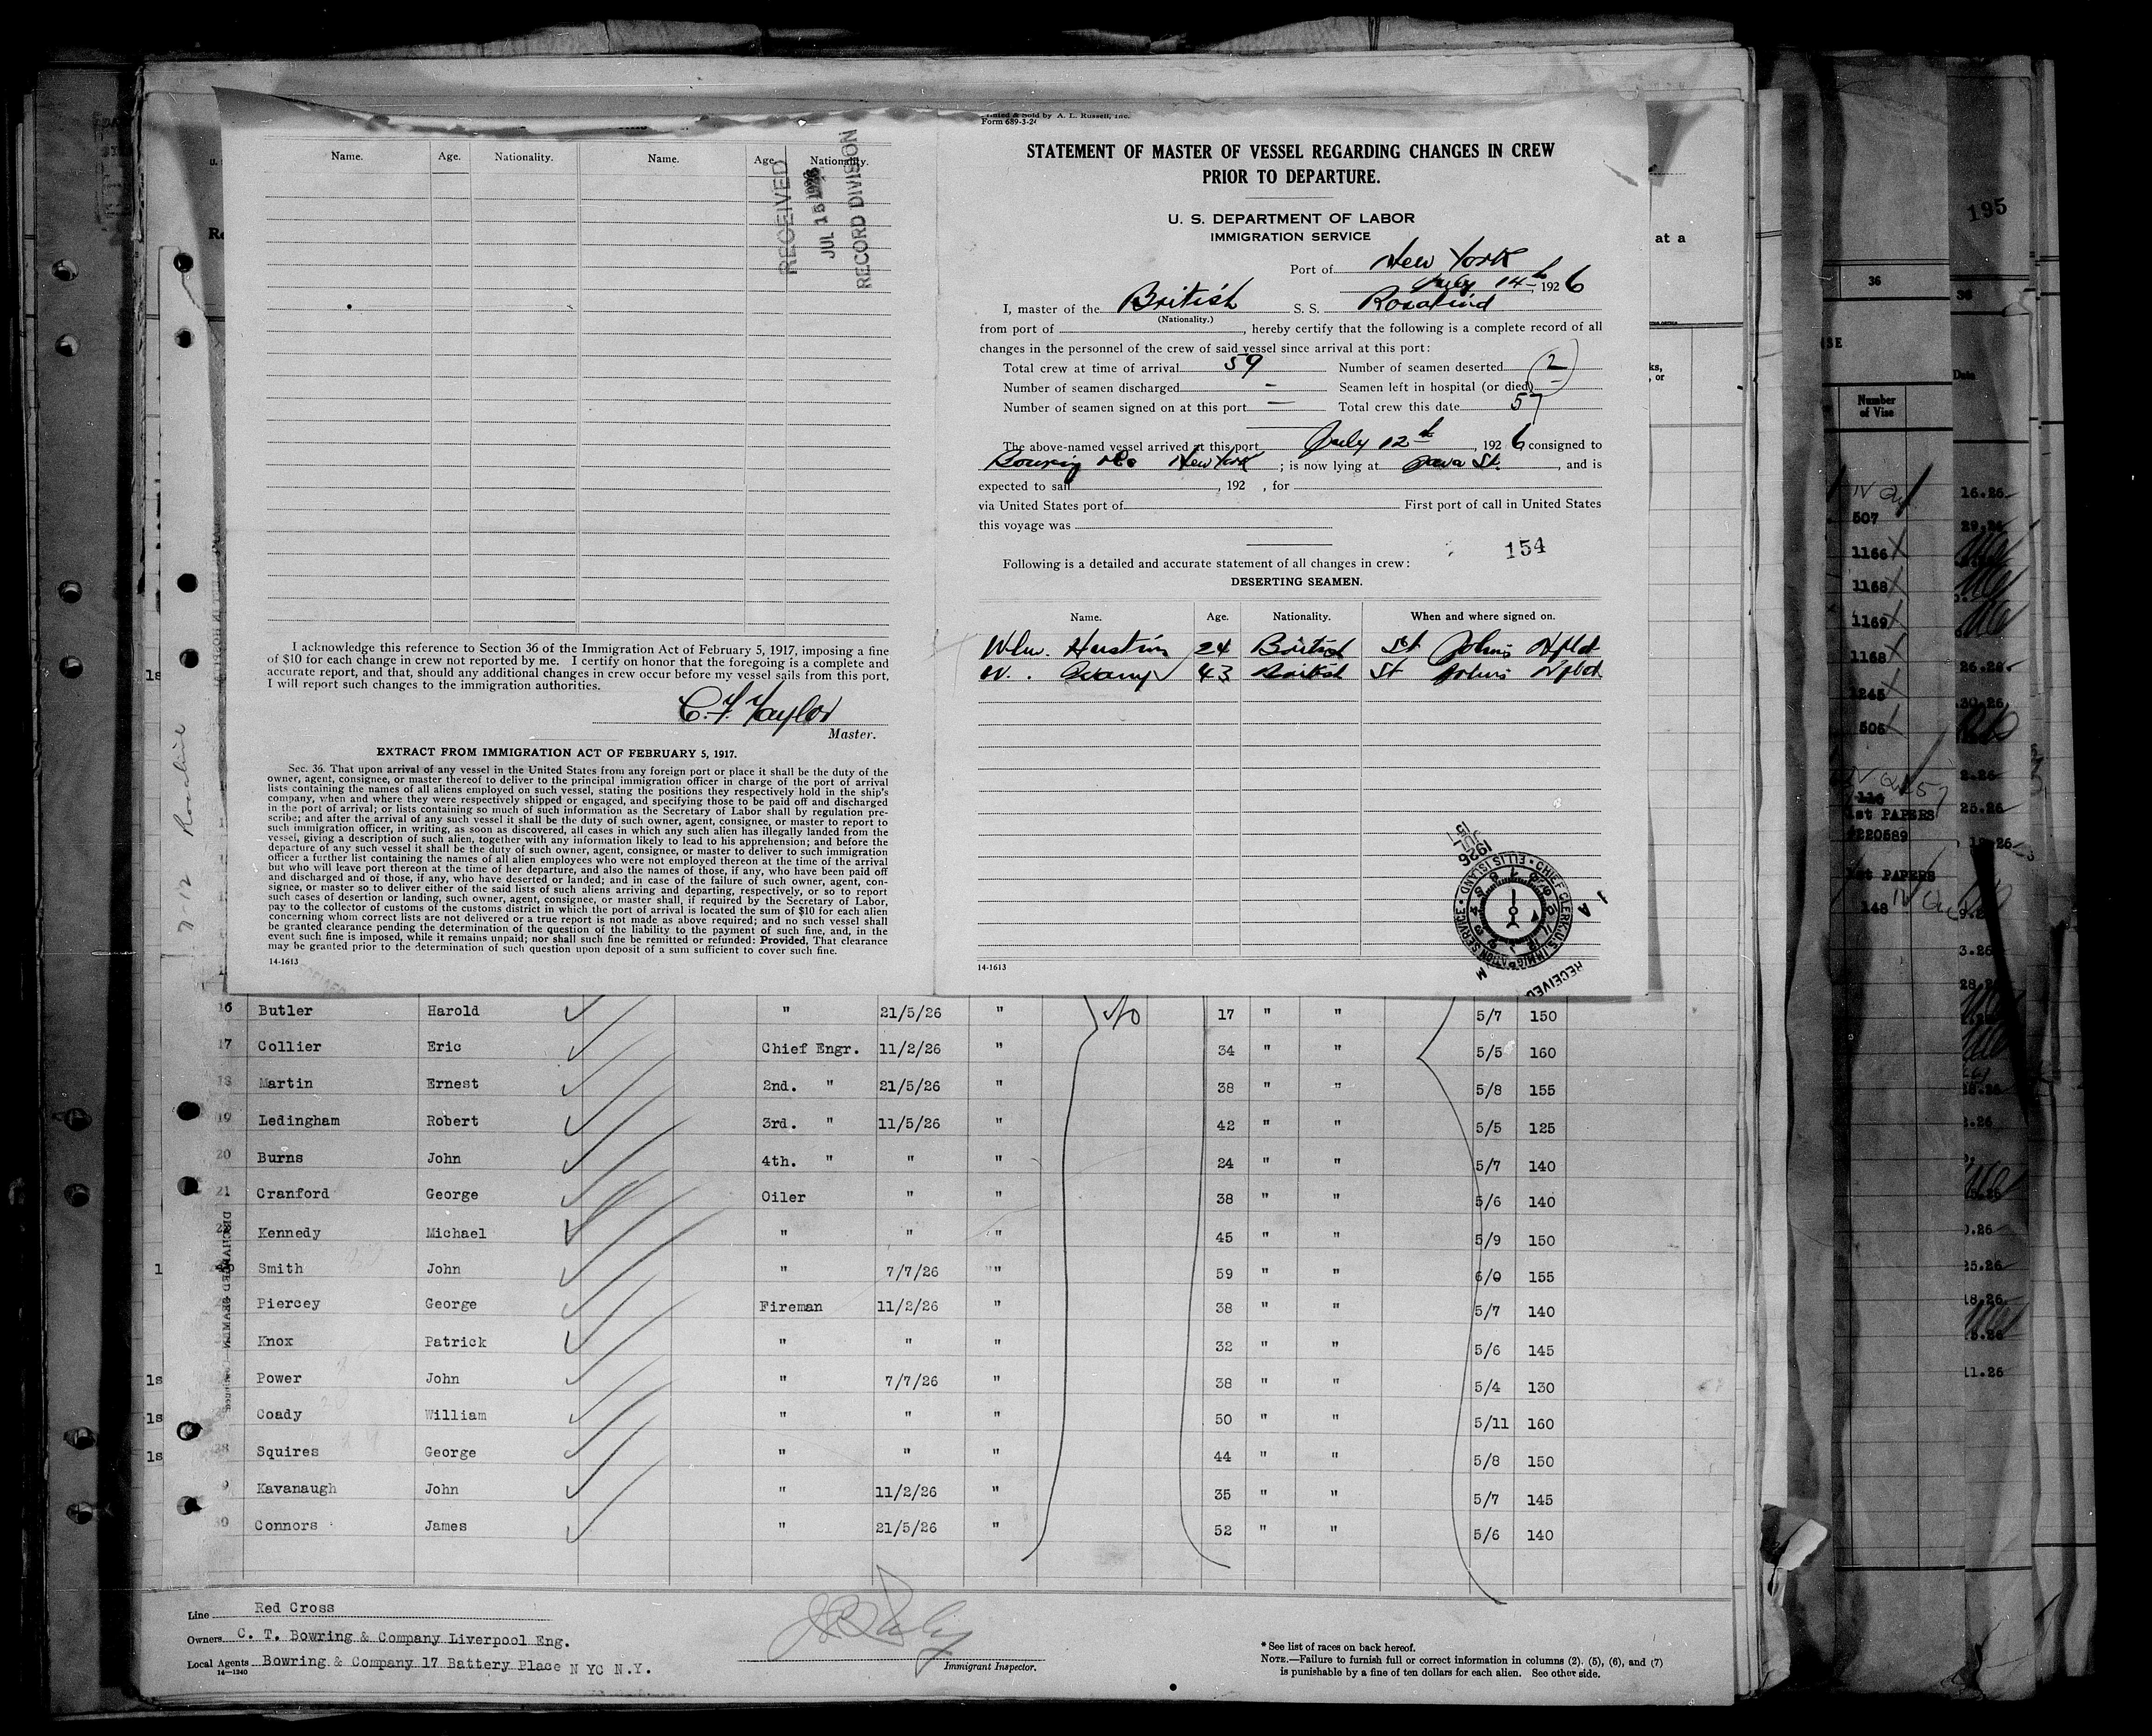 Name. Age. Nationality. Name. Age. Nationality.
RECEIVED
JUL 15 1926
RECORD DIVISION
I acknowledge this reference to Section 36 of the Immigration Act of February 5, 1917, imposing a fine
of $10 for each change in crew not reported by me. I certify on honor that the foregoing is a complete and
accurate report, and that, should any additional changes in crew occur before my vessel sails from this port,
I will report such changes to the immigration authorities.
C. F. Taylor
Master.
EXTRACT FROM IMMIGRATION ACT OF FEBRUARY 5, 1917.
Sec. 36. That upon arrival of any vessel in the United States from any foreign port or place it shall be the duty of the
owner, agent, consignee, or master thereof to deliver to the principal immigration officer in charge of the port of arrival
lists containing the names of all aliens employed on such vessel, stating the positions they respectively hold in the ship's
company, when and where they were respectively shipped or engaged, and specifying those to be paid off and discharged
in the port of arrival; or lists containing so much of such information as the Secretary of Labor shall by regulation pre-
scribe; and after the arrival of any such vessel it shall be the duty of such owner, agent, consignee, or master to report to
such immigration officer, in writing, as soon as discovered, all cases in which any such alien has illegally landed from the
vessel, giving a description of such alien, together with any information likely to lead to his apprehension; and before the
departure of any such vessel it shall be the duty of such owner, agent, consignee, or master to deliver to such immigration
officer a further list containing the names of all alien employees who were not employed thereon at the time of the arrival
but who will leave port thereon at the time of her departure, and also the names of those, if any, who have been paid off
and discharged and of those, if any, who have deserted or landed; and in case of the failure of such owner, agent, con-
signee, or master so to deliver either of the said lists of such aliens arriving and departing, respectively, or so to report
such cases of desertion or landing, such owner, agent, consignee, or master shall, if required by the Secretary of Labor,
pay to the collector of customs of the customs district in which the port of arrival is located the sum of $10 for each alien
concerning whom correct lists are not delivered or a true report is not made as above required; and no such vessel shall
be granted clearance pending the determination of the question of the liability to the payment of such fine, and, in the
event such fine is imposed, while it remains unpaid; nor shall such fine be remitted or refunded: Provided, That clearance
may be granted prior to the determination of such question upon deposit of a sum sufficient to cover such fine.
14-1613
Printed & Sold by A. L. Russell, Inc.
Form 689-3-24
STATEMENT OF MASTER OF VESSEL REGARDING CHANGES IN CREW
PRIOR TO DEPARTURE.
U. S. DEPARTMENT OF LABOR
IMMIGRATION SERVICE
Port of New York
July 14th, 1926
I, master of the British S. S. Rosalind
(Nationality.)
from port of , hereby certify that the following is a complete record of all
changes in the personnel of the crew of said vessel since arrival at this port:
Total crew at time of arrival 59 Number of seamen deserted 2
Number of seamen discharged - Seamen left in hospital (or died) -
Number of seamen signed on at this port - Total crew this date 57
The above-named vessel arrived at this port July 12th, 1926, consigned to
Bowring & Co New York ; is now lying at Java St. , and is
expected to sail , 192 , for
via United States port of First port of call in United States
this voyage was
154
Following is a detailed and accurate statement of all changes in crew:
DESERTING SEAMEN.
Name. Age. Nationality. When and where signed on.
Wlm. 24 British St Johns Nfld
W. 43 British St Johns Nfld
CHIEF CLERK U.S. IMMIGRATION SERVICE • ELLIS ISLAND
1926
RECEIVED
A
M
14-1613
7-12 Rosalind
at a
ks,
, or
195
36
36
Date
Number
of Vise
507
1166
1168
1169
1168
1245
505
116
1st PAPERS
220589
1st PAPERS
148
16.26
29.26
26.26
30.26
2.26
25.26
3.26
.26
15.26
18.26
11.26
DISCHARGED SEAMEN—Continued.
16 Butler Harold " 21/5/26 " 17 " " 5/7 150
17 Collier Eric Chief Engr. 11/2/26 " 34 " " 5/5 160
18 Martin Ernest 2nd. " 21/5/26 " 38 " " 5/8 155
19 Ledingham Robert 3rd. " 11/5/26 " 42 " " 5/5 125
20 Burns John 4th. " " " 24 " " 5/7 140
21 Cranford George Oiler " " 38 " " 5/6 140
Kennedy Michael " " " 45 " " 5/9 150
1 Smith John " 7/7/26 " 59 " " 6/0 155
Piercey George Fireman 11/2/26 " 38 " " 5/7 140
Knox Patrick " " " 32 " " 5/6 145
1s Power John " 7/7/26 " 38 " " 5/4 130
1s Coady William " " " 50 " " 5/11 160
1s 28 Squires George " " " 44 " " 5/8 150
9 Kavanaugh John " 11/2/26 " 35 " " 5/7 145
30 Connors James " 21/5/26 " 52 " " 5/6 140
Line Red Cross
Owners C. T. Bowring & Company Liverpool Eng.
Local Agents Bowring & Company 17 Battery Place N YC N.Y.
14—1240
Immigrant Inspector.
* See list of races on back hereof.
NOTE.—Failure to furnish full or correct information in columns (2), (5), (6), and (7)
is punishable by a fine of ten dollars for each alien. See other side.